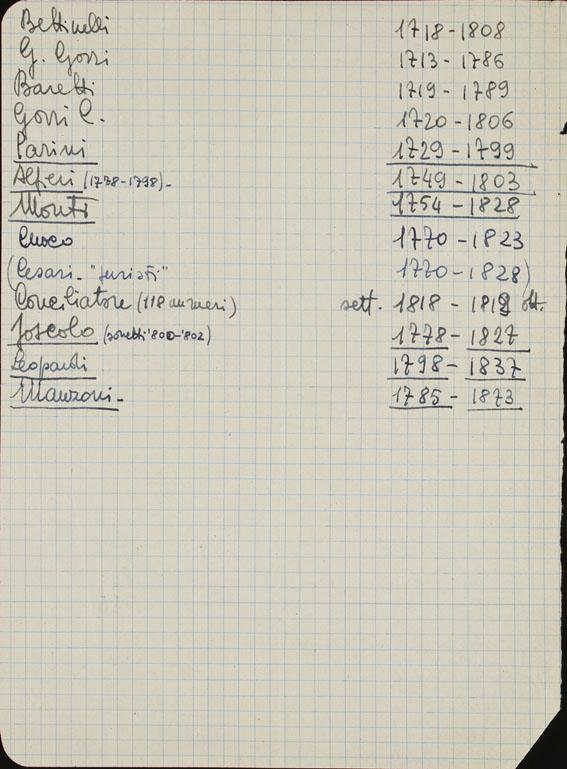 Bettinelli 1718-1808
G. Gozzi 1713-1786
Baretti 1719-1789
Gozzi C. 1720-1806
Parini 1729-1799
Alfieri (1778-1798)- 1749-1803
Monti 1754-1828
Cuoco 1770-1823
(Cesari - "puristi" 1770-1828)
Conciliatore (118 numeri) sett. 1818-1819 ott.
Foscolo (sonetti '800-'802) 1778-1827
Leopardi 1798-1837
Manzoni- 1785-1873